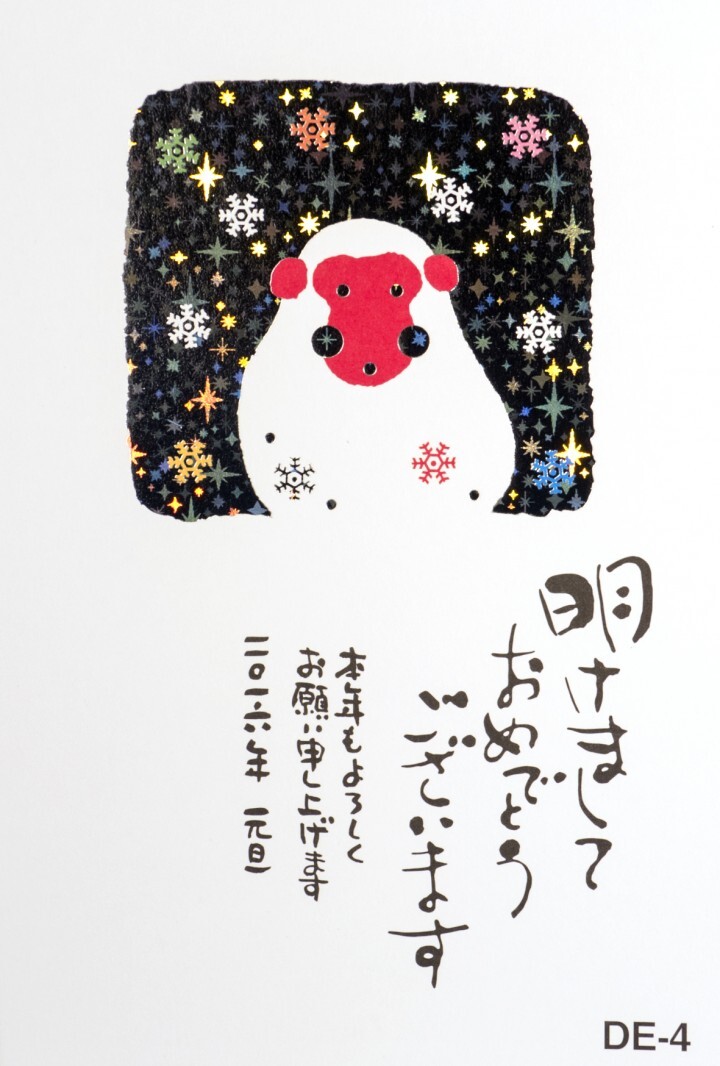 明けまして
おめでとう
ございます
本年もよろしく
お願い申し上げます
二〇一六年 元旦
DE-4